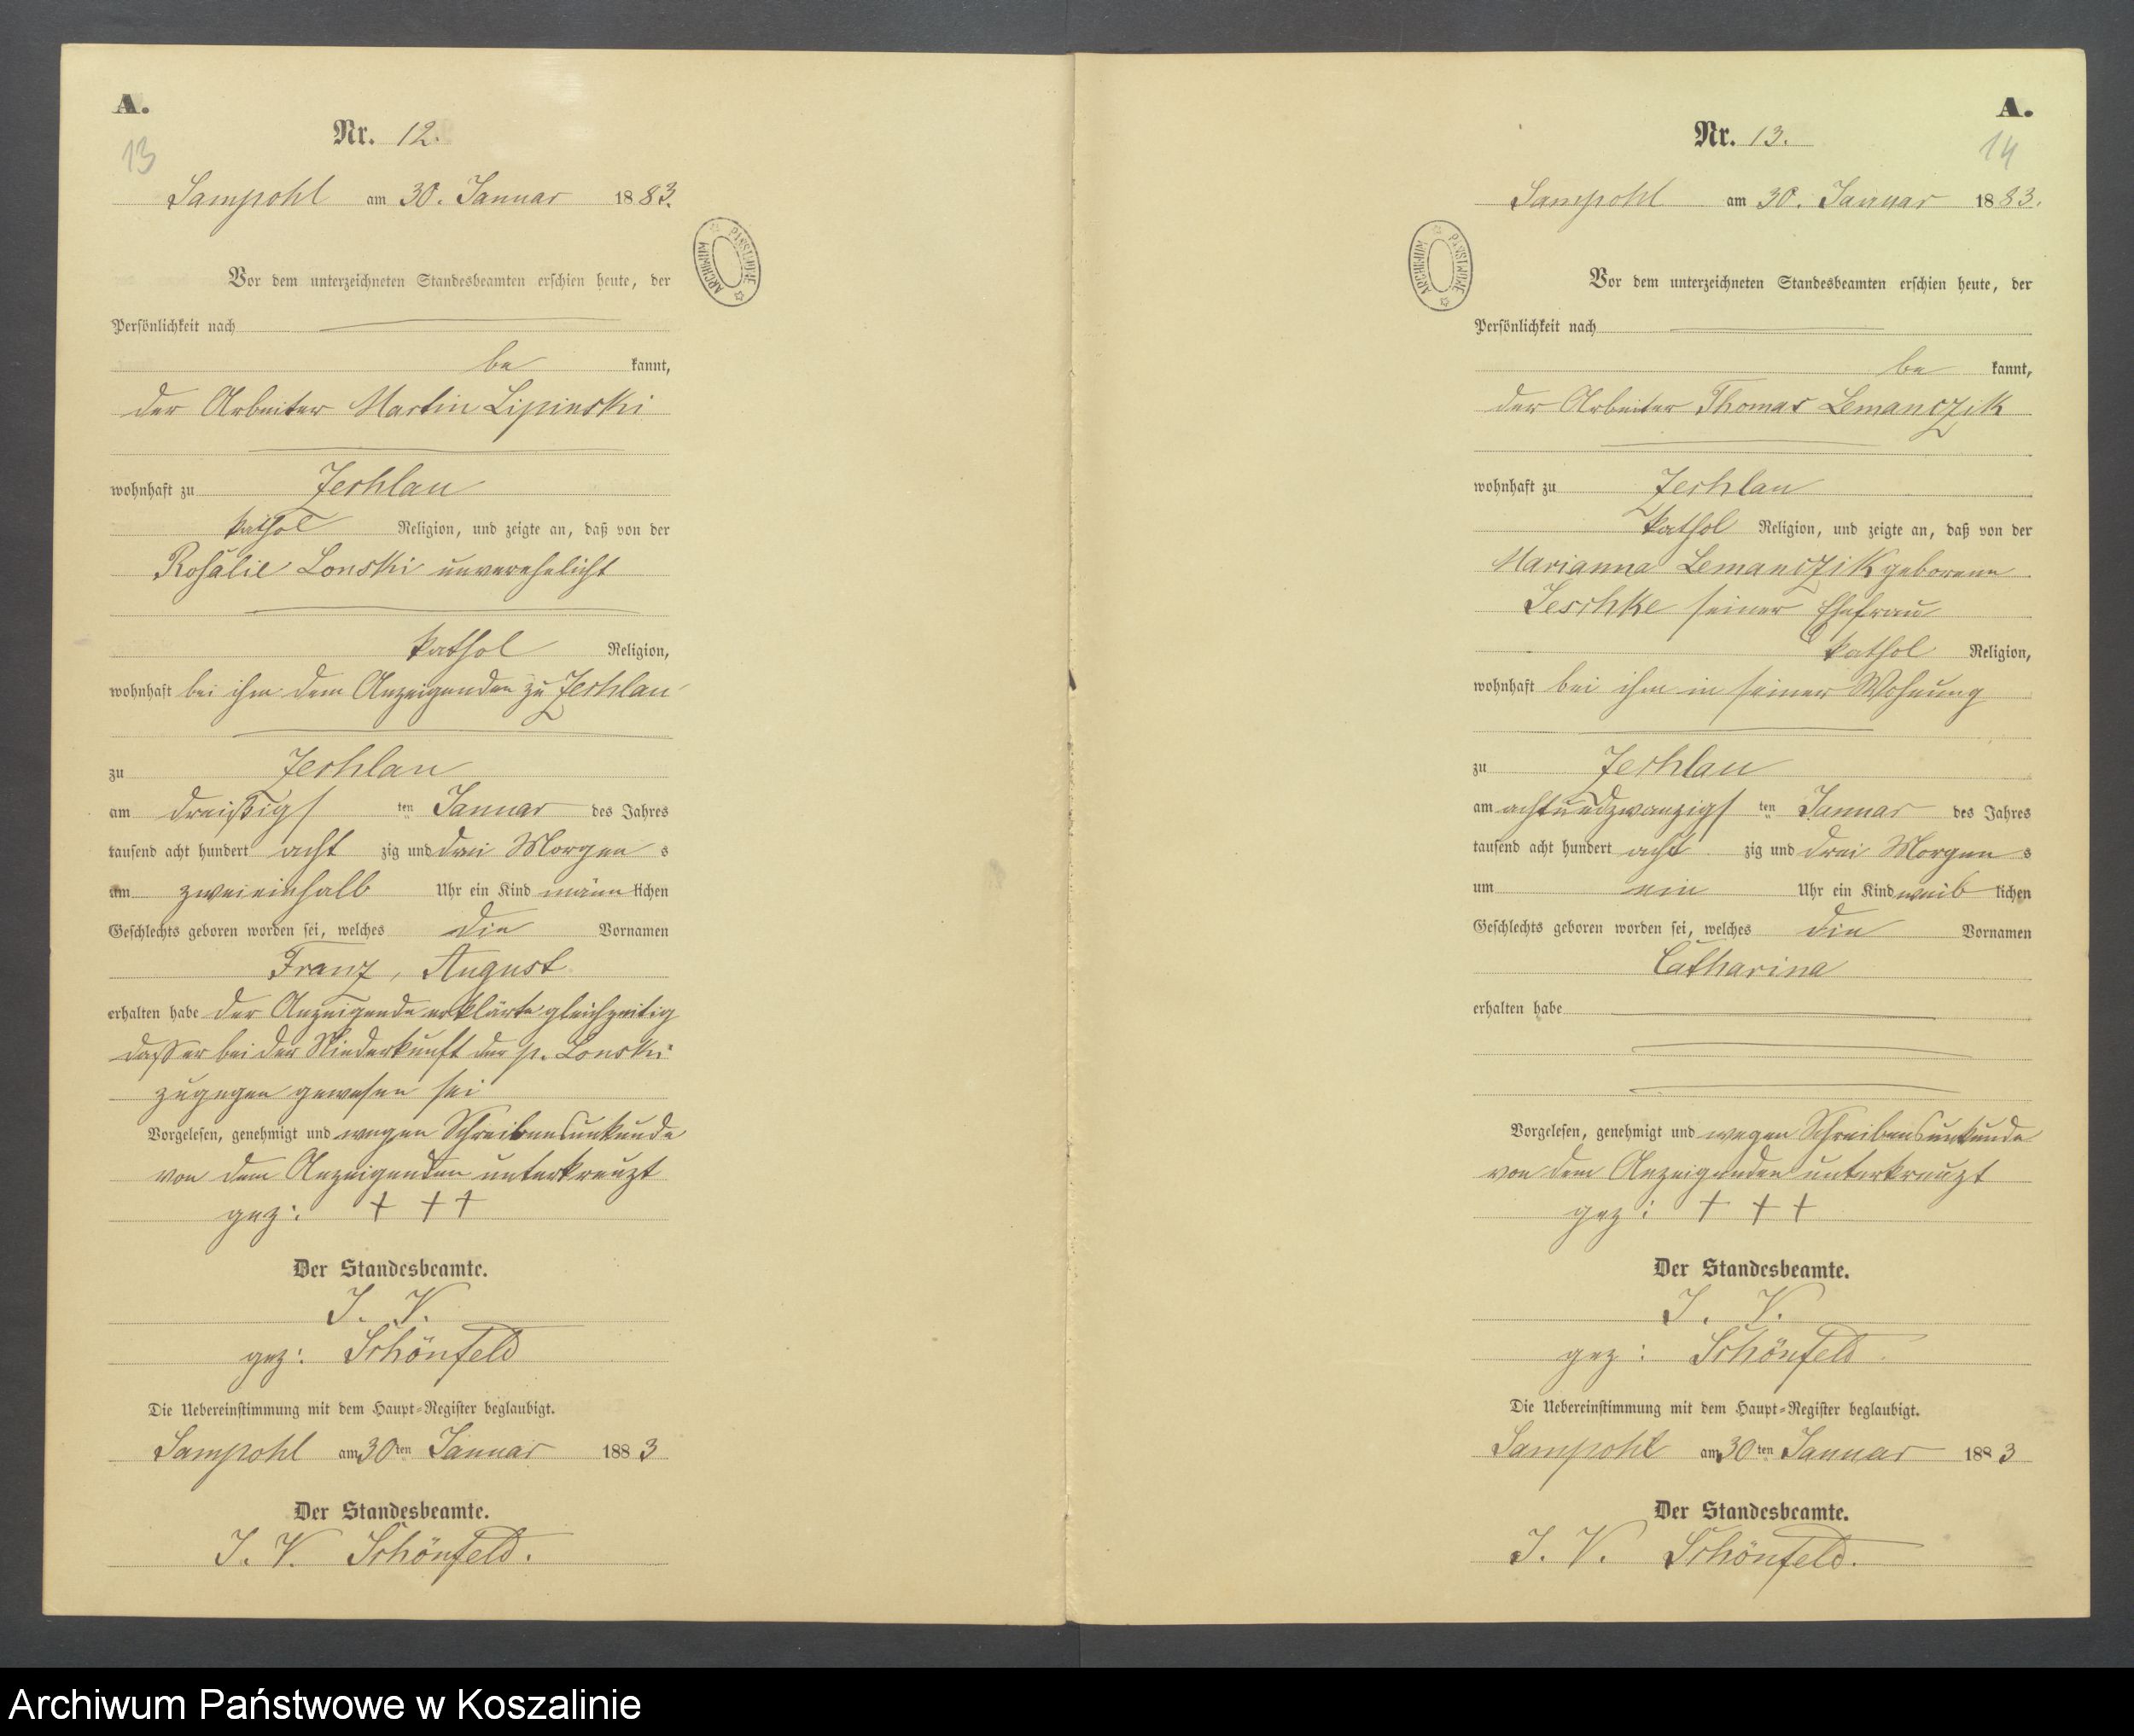 A.
13
Nr. 12.
Sampohl am 30. Januar 1883.
ARCHIWUM PAŃSTWOWE
Vor dem unterzeichneten Standesbeamten erschien heute, der
Persönlichkeit nach
be kannt,
der Arbeiter Martin Lipinski
wohnhaft zu Zechlau
kathol Religion, und zeigte an, daß von der
Rosalie Lonski unverehelicht
kathol Religion,
wohnhaft bei ihm dem Anzeigenden zu Zechlau
zu Zechlau
am dreißigs ten Januar des Jahres
tausend acht hundert acht zig und drei Morgen s
um zweieinhalb Uhr ein Kind männ lichen
Geschlechts geboren worden sei, welches die Vornamen
Franz, August
erhalten habe der Anzeigende erklärte gleichzeitig
dass er bei der Niederkunft der p. Lonski
zugegen gewesen sei
Vorgelesen, genehmigt und wegen Schreibensunkunde
von dem Anzeigenden unterkreuzt
gez: + + +
Der Standesbeamte.
J. V.
gez: Schönfeld
Die Uebereinstimmung mit dem Haupt-Register beglaubigt.
Sampohl am 30 ten Januar 1883
Der Standesbeamte.
J. V. Schönfeld.
A.
14
Nr. 13.
Sampohl am 30. Januar 1883.
ARCHIWUM PAŃSTWOWE
Vor dem unterzeichneten Standesbeamten erschien heute, der
Persönlichkeit nach
be kannt,
der Arbeiter Thomas Lemanczik
wohnhaft zu Zechlau
kathol Religion, und zeigte an, daß von der
Marianna Lemanczik geborene
Jeschke seiner Ehefrau
kathol Religion,
wohnhaft bei ihm in seiner Wohnung
zu Zechlau
am achtundzwanzigs ten Januar des Jahres
tausend acht hundert acht zig und drei Morgen s
um ein Uhr ein Kind weib lichen
Geschlechts geboren worden sei, welches die Vornamen
Catharina
erhalten habe
Vorgelesen, genehmigt und wegen Schreibensunkunde
von dem Anzeigenden unterkreuzt
gez: + + +
Der Standesbeamte.
J. V.
gez: Schönfeld.
Die Uebereinstimmung mit dem Haupt-Register beglaubigt.
Sampohl am 30 ten Januar 1883
Der Standesbeamte.
J. V. Schönfeld.
Archiwum Państwowe w Koszalinie